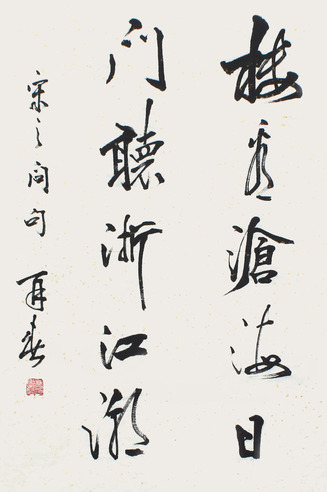 楼看滄海日
门聽浙江潮
宋之问句 再春